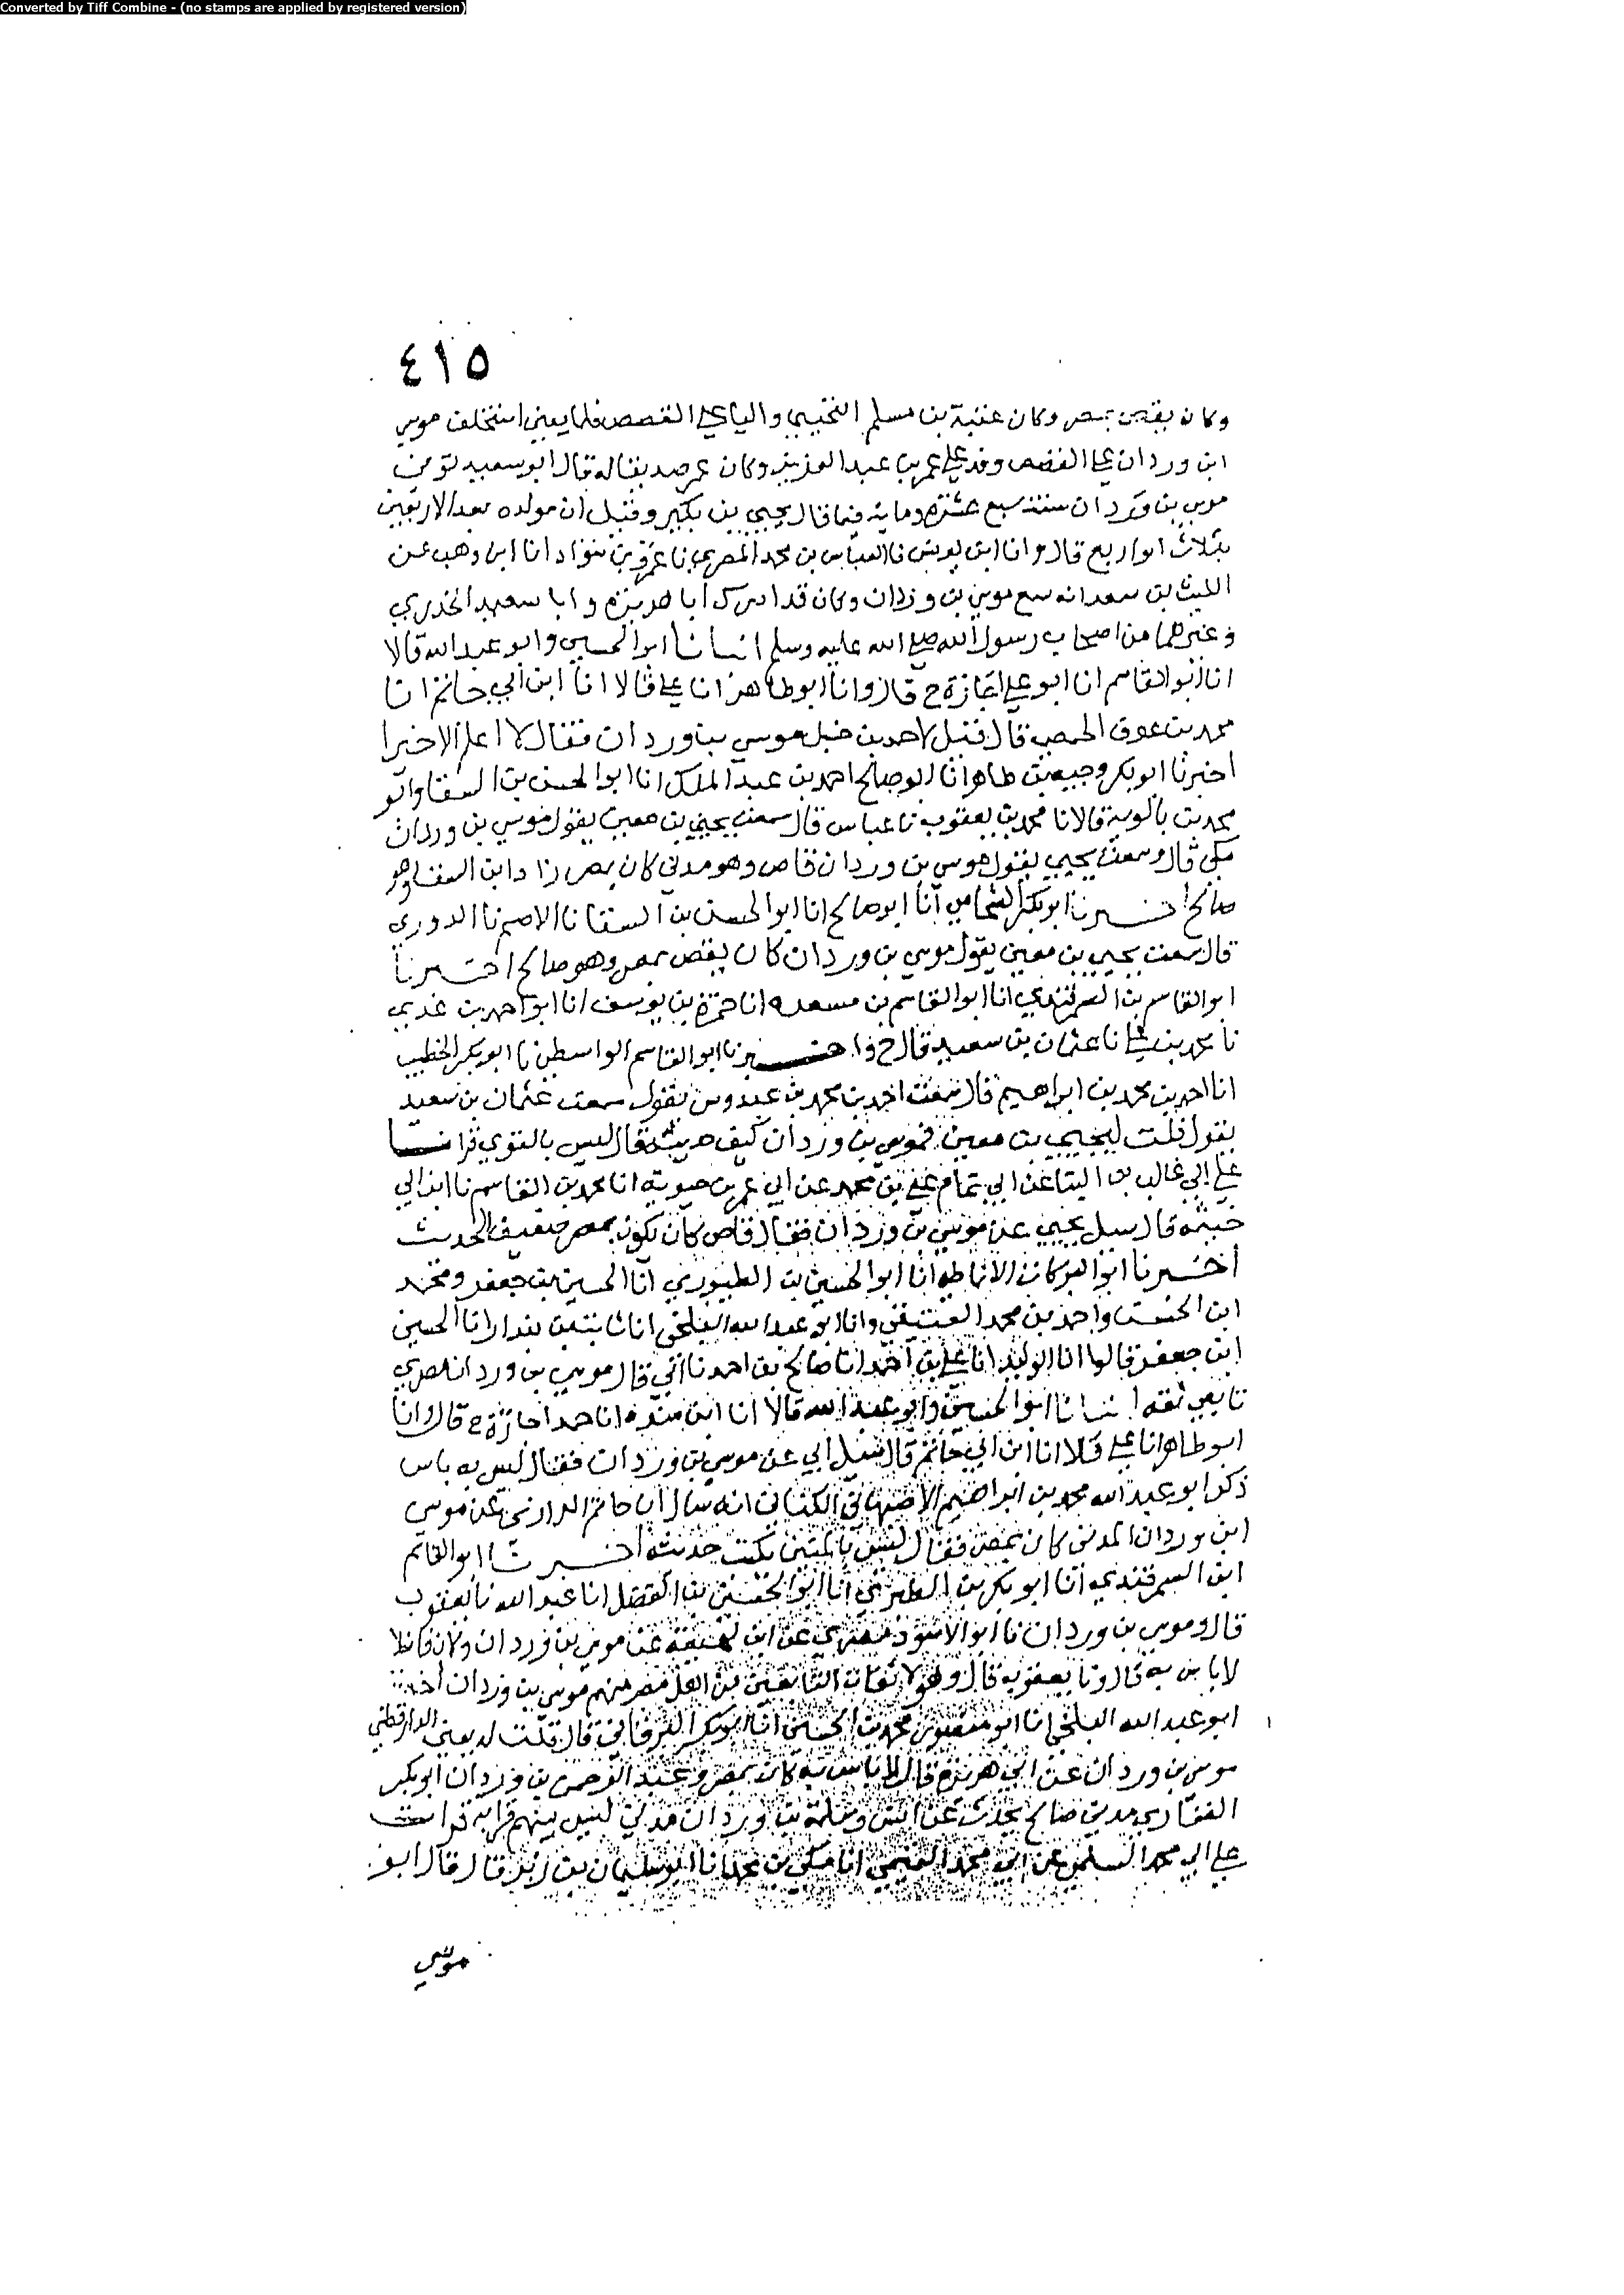 Converted by Tiff Combine - (no stamps are applied by registered version)
٤١٥
وكان يقص بمصر وكان عتبة بن مسلم التجيبي واليا على القصص فلما يعني استخلف موسى
ابن وردان على القصص وفد على عمر بن عبد العزيز وكان عمر صديقا له قال ابو سعيد توفي
موسى بن وردان سنة سبع عشرة وماية فيما قال يحيى بن بكير وقيل ان مولده بعد الاربعين
بثلاث او اربع قال وانا ابن يونس نا العباس بن محمد المصري نا عمرو بن سواد انا ابن وهب عن
الليث بن سعد انه سمع موسى بن وردان وكان قد ادرك ابا هريرة وابا سعيد الخدري
وغيرهما من اصحاب رسول الله صلى الله عليه وسلم انبانا ابو الحسين وابو عبد الله قالا
انا ابو القاسم انا ابو علي اجازة ح قال وانا ابو طاهر انا علي قالا انا ابن ابي حاتم انا
محمد بن عوف الحمصي قال قيل لاحمد بن حنبل موسى بن وردان فقال لا اعلم الا خيرا
اخبرنا ابو بكر وجيه بن طاهر انا ابو صالح احمد بن عبد الملك انا ابو الحسن بن السقا وابو
محمد بن بالوية قالا نا محمد بن يعقوب نا عباس قال سمعت يحيى بن معين يقول موسى بن وردان
مكي قال وسمعت يحيى يقول موسى بن وردان قاص وهو مدني كان بمصر زاد ابن السقا وهو
صالح اخبرنا ابو بكر الشحامي انا ابو صالح انا ابو الحسن بن السقا نا الاصم نا الدوري
قال سمعت يحيى بن معين يقول موسى بن وردان كان يقص بمصر وهو صالح اخبرنا
ابو القاسم بن السمرقندي انا ابو القاسم بن مسعدة انا حمزة بن يوسف انا ابو احمد بن عدي
نا محمد بن علي نا عثمان بن سعيد قال ح واخبرنا ابو القاسم الواسطي نا ابو بكر الخطيب
انا احمد بن محمد بن ابراهيم قال سمعت احمد بن محمد بن عبدوس يقول سمعت عثمان بن سعيد
يقول قلت ليحيى بن معين فموسى بن وردان كيف حديثه فقال ليس بالقوي قرانا
على ابي غالب بن البنا عن ابي تمام علي بن محمد عن ابي عمر بن حيوية انا محمد بن القاسم نا ابن ابي
خيثمة قال سيل يحيى عن موسى بن وردان فقال قاص كان يكون بمصر ضعيف الحديث
اخبرنا ابو البركات الانماطي انا ابو الحسين بن الطيوري انا الحسين بن جعفر ومحمد
ابن الحسن واحمد بن محمد العتيقي وانا ابو عبد الله البلخي انا ثابت بن بندار انا الحسين
ابن جعفر قالوا انا الوليد انا علي بن احمد انا صالح بن احمد نا ابي قال موسى بن وردان مصري
تابعي ثقه انبانا ابو الحسين وابو عبد الله قالا انا ابن منده انا حمد اجازة ح قال وانا
ابو طاهر انا علي قالا انا ابن ابي حاتم قال سيل ابي عن موسى بن وردان فقال ليس به باس
ذكر ابو عبد الله محمد بن ابراهيم الاصبهاني الكتاني انه سال ابا حاتم الرازي عن موسى
ابن وردان المدني كان بمصر فقال ليس بالمتين يكتب حديثه اخبرنا ابو القاسم
ابن السمرقندي انا ابو بكر بن الطبري انا ابو الحسين بن الفضل انا عبد الله نا يعقوب
قال وموسى بن وردان نا ابو الاسود مصري عن ابن لهيعة عن موسى بن وردان وكان قاصا
لا باس به قال ونا يعقوب قال وهولا ثقات التابعين من اهل مصر منهم موسى بن وردان اخبرنا
ابو عبد الله البلخي انا ابو منصور محمد بن الحسين انا ابو بكر البرقاني قال قلت له يعني الدارقطني
موسى بن وردان عن ابي هريرة قال لا باس به كان بمصر وعبد الرحمن بن وردان ابو بكر
الغفاري مدني صالح يحدث عن انس وسلمة بن وردان مدني ليس بينهم قرابة قرات
على ابي محمد السلمي عن ابي محمد التميمي انا مكي بن محمد انا ابو سليمان بن زبر قال قال ابو
موسى